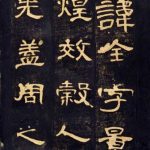 諱全字景
煌效穀人
先蓋周之